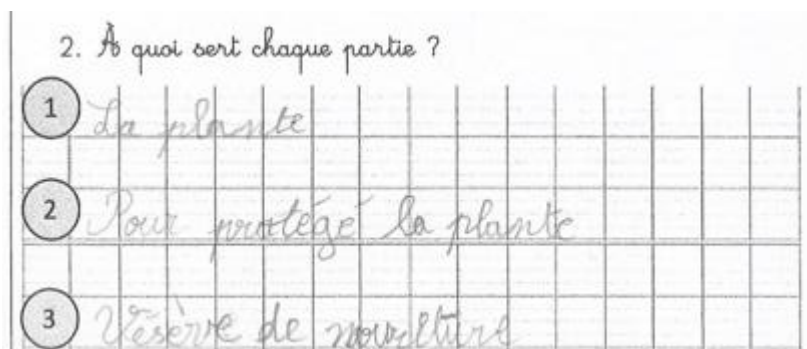 2. À quoi sert chaque partie ?
1 La plante
2 Pour protégé la plante
3 Résèrve de nourriture